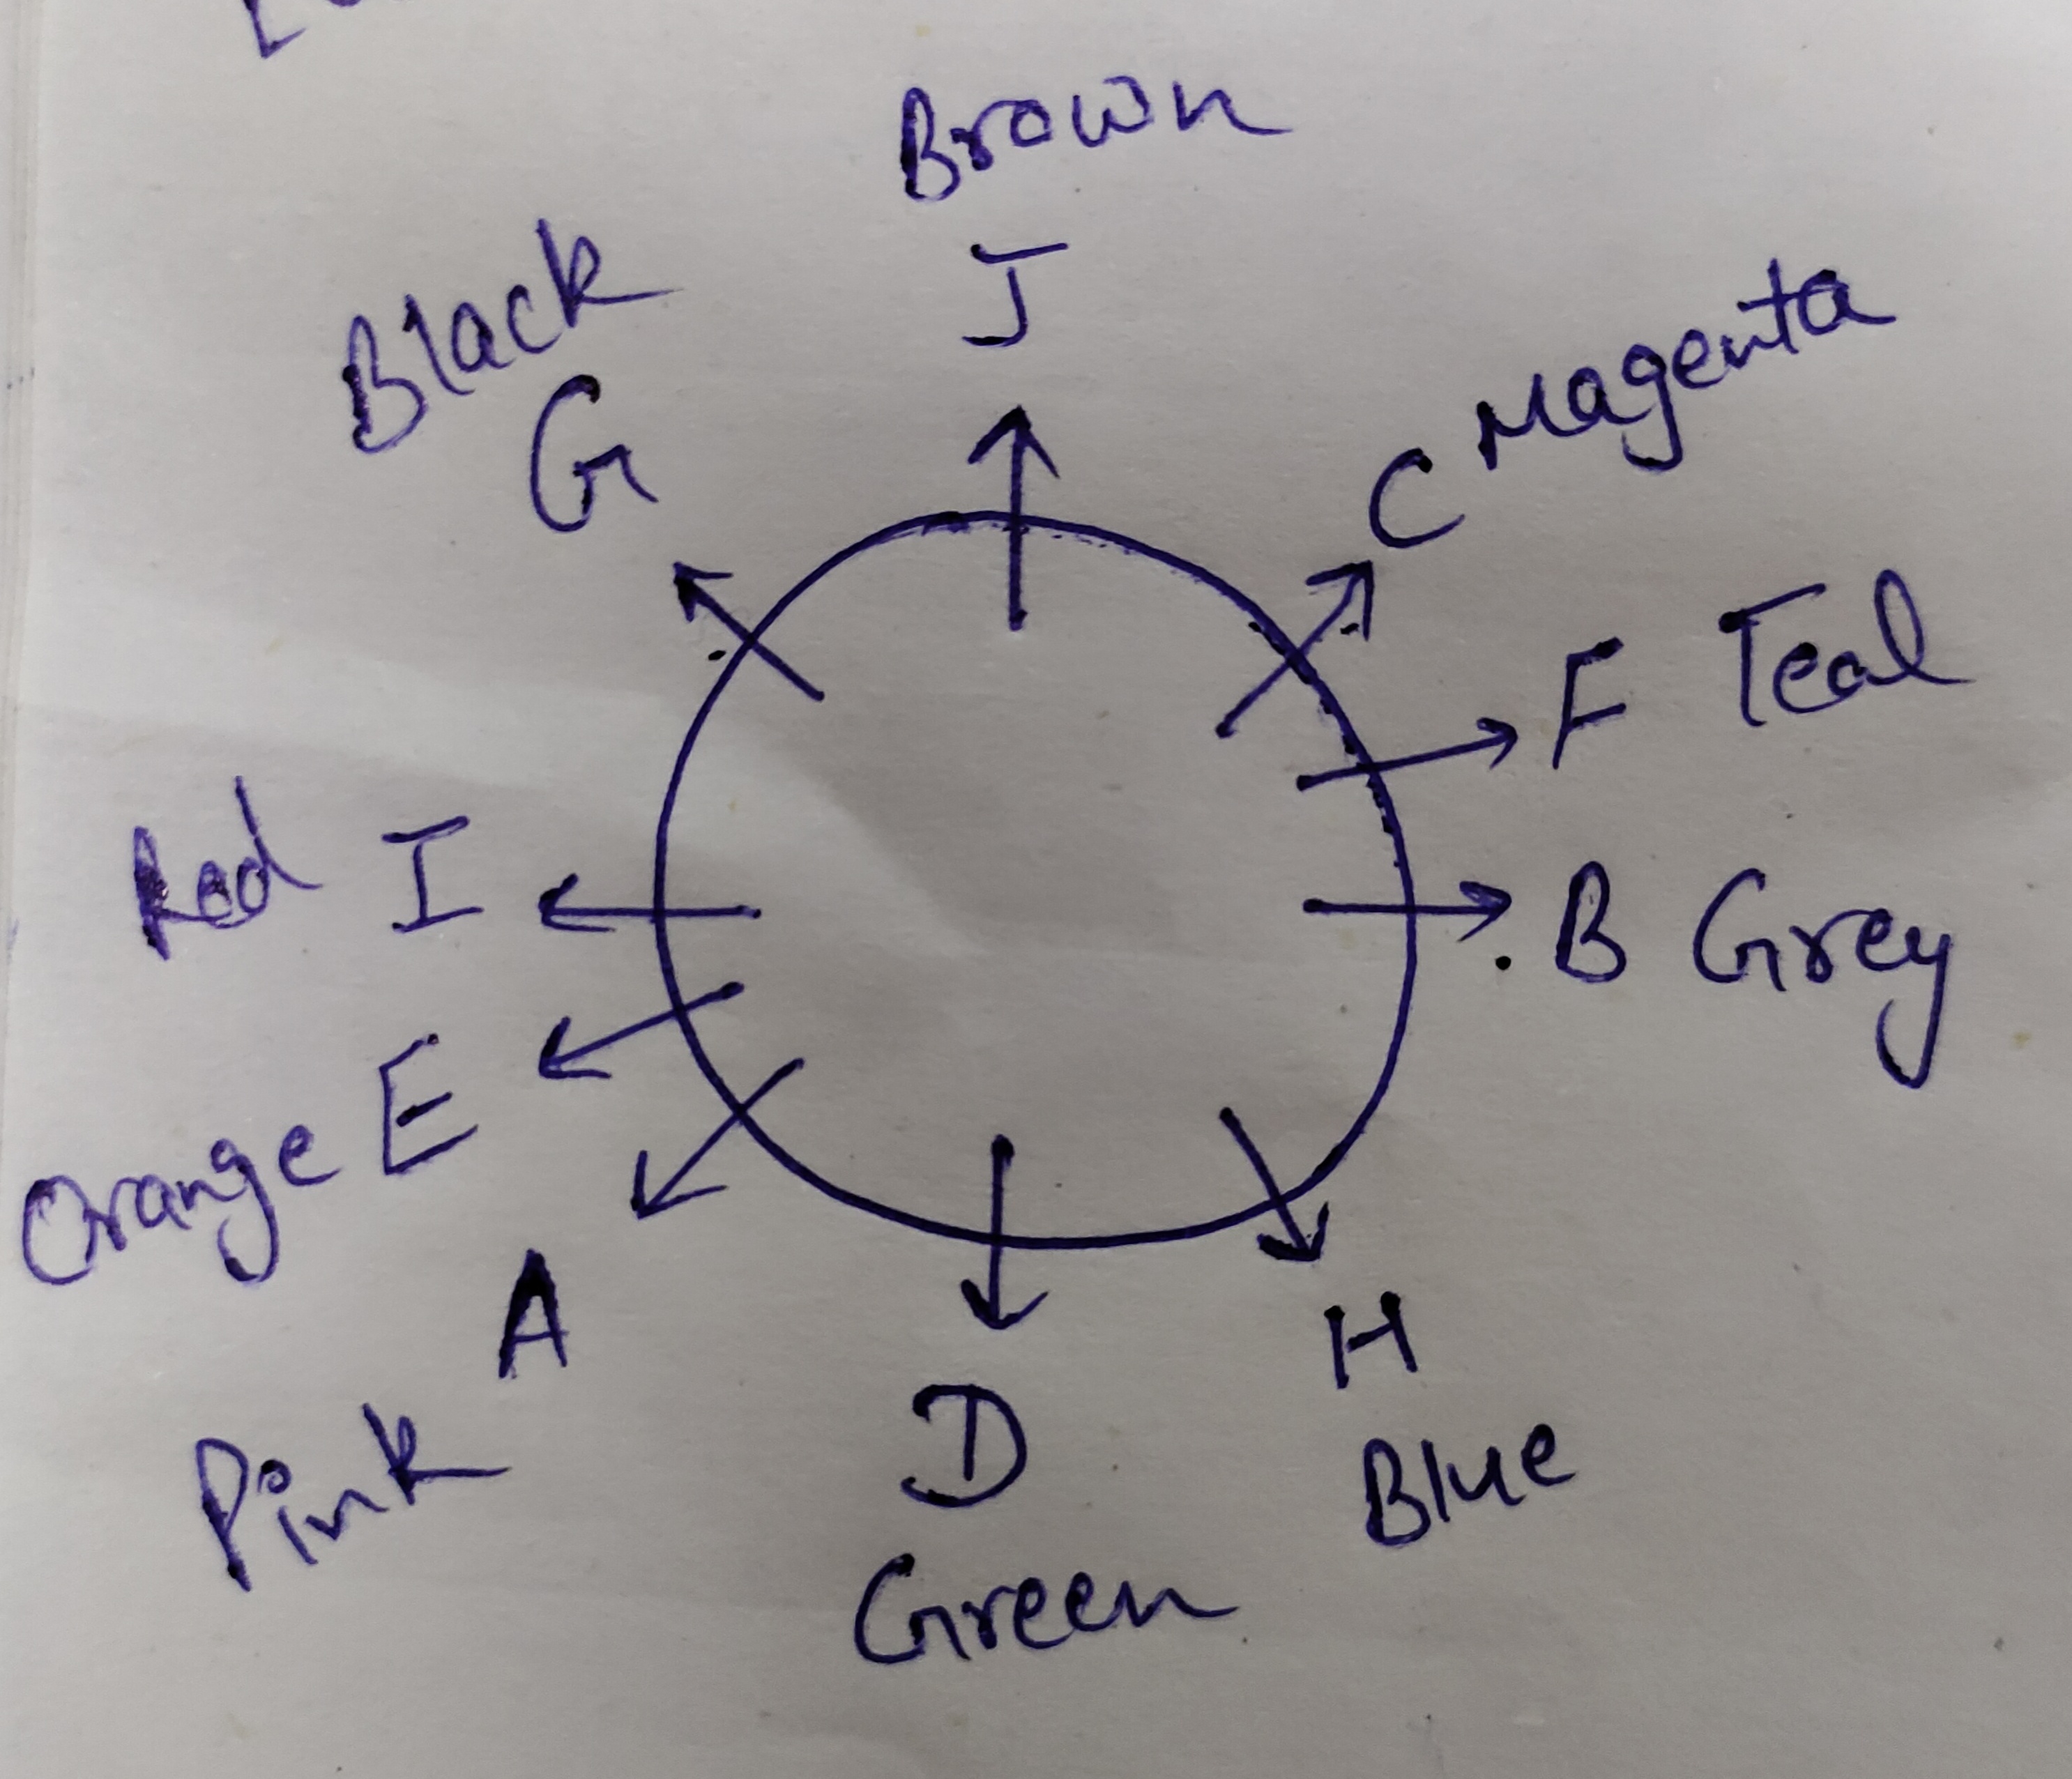 Brown
J
Black
G
C Magenta
F Teal
Red I
B Grey
Orange E
A
Pink
H
Blue
D
Green